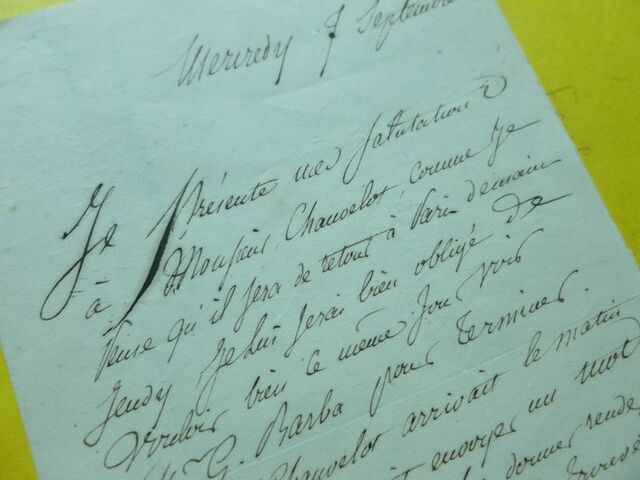 Mercredy 7 Septembre
Je Présente mes Salutations
à Monsieur Chauvelot, comme Je
Pense qu'il sera de retour à Paris demain
Jeudy, Je lui serai bien obligé de
Vouloir bien ce même Jour voir
Mr G. Barba pour Terminer.
Chauvelot arrivait le matin
envoyer un mot
donner rende
trouve